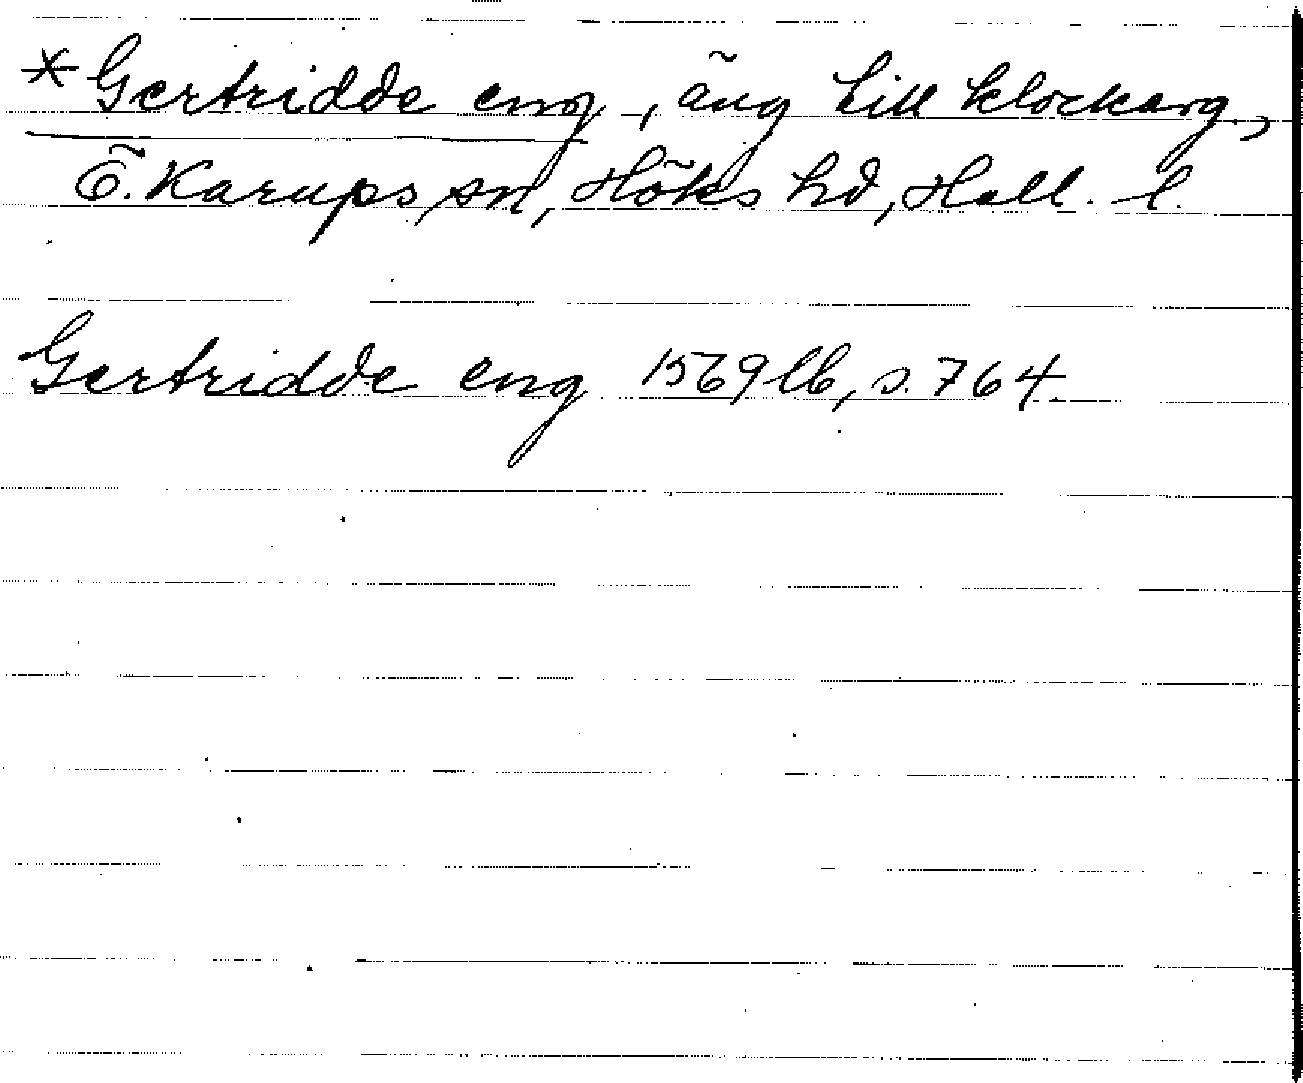 *Gertridde eng, äng till klockarg,
Ö. Karups sn, Höks hd, Hall. l.
Gertridde eng 1569 lb, s. 764.